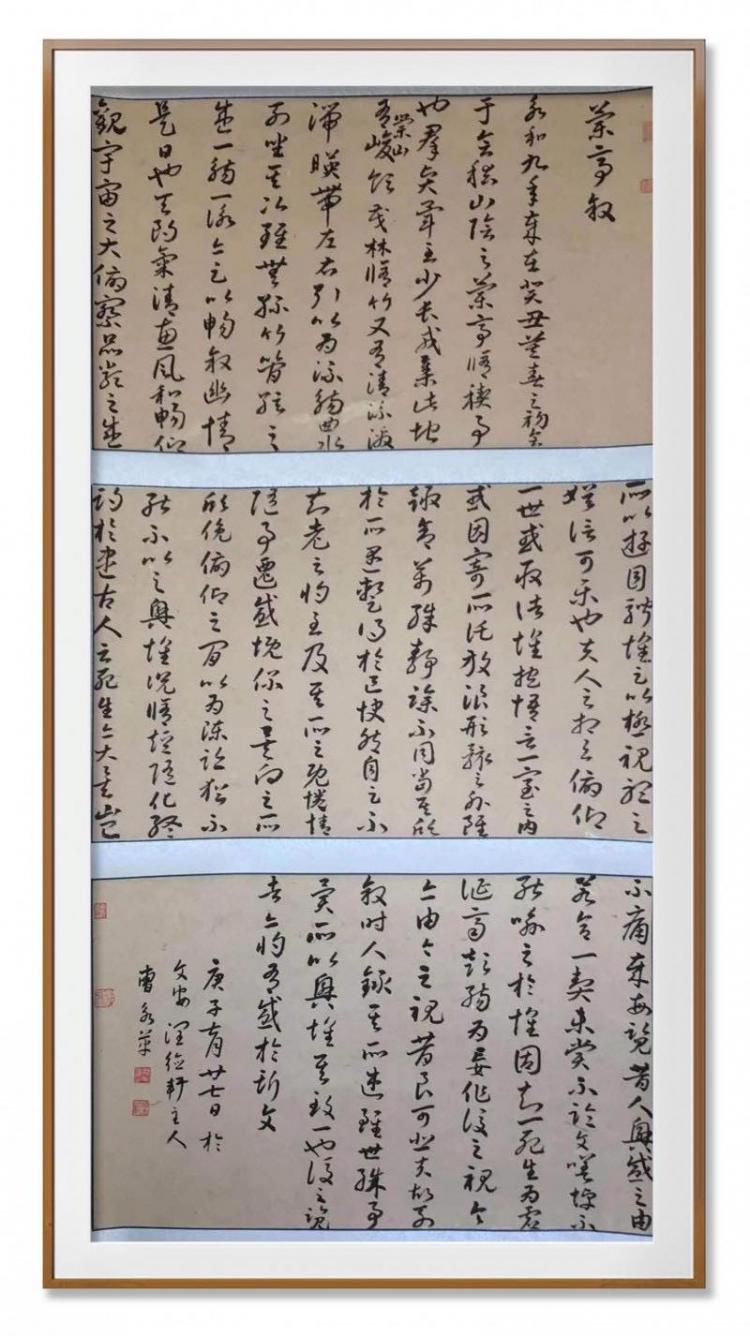 蘭亭敘
永和九年歲在癸丑暮春之初會
于會稽山陰之蘭亭脩稧事
也群賢畢至少長咸集此地
有崇山峻領茂林脩竹又有清流激
湍暎帶左右引以為流觴曲水
列坐其次雖無絲竹管弦之
盛一觴一詠亦足以暢敘幽情
是日也天朗氣清惠風和暢仰
觀宇宙之大俯察品類之盛
所以遊目騁懷足以極視聽之
娛信可樂也夫人之相與俯仰
一世或取諸懷抱悟言一室之內
或因寄所託放浪形骸之外雖
趣舍萬殊靜躁不同當其欣
於所遇蹔得於己怏然自足不
知老之將至及其所之既惓情
隨事遷感慨係之矣向之所
欣俛俯仰之間以為陳迹猶不
能不以之興懷況脩短隨化終
期於盡古人云死生亦大矣豈
不痛哉每覽昔人興感之由
若合一契未嘗不臨文嗟悼不
能喻之於懷固知一死生為虛
誕齊彭殤為妄作後之視今
亦由今之視昔良可悲夫故列
敘時人錄其所述雖世殊事
異所以興懷其致一也後之覽
者亦將有感於斯文
庚子月廿七日於
文安軒主人
曹永